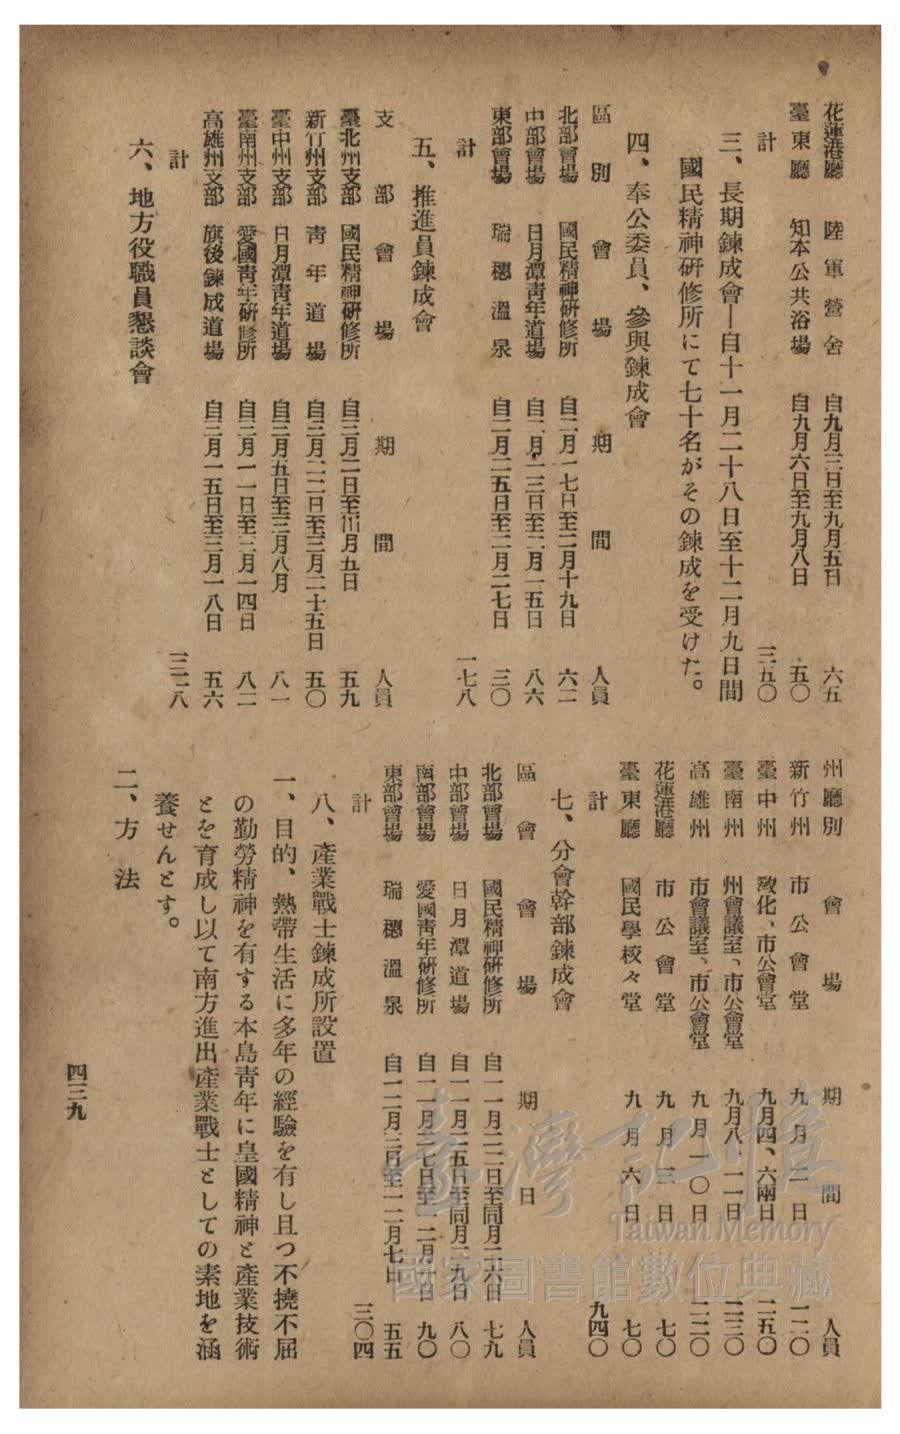 花蓮港廳　陸軍營舍　自九月三日至九月五日　六五
臺東廳　知本公共浴場　自九月六日至九月八日　五〇
計
三、長期鍊成會―自十一月二十八日至十二月九日間
國民精神研修所にて七十名がその鍊成を受けた。
四、奉公委員、參與鍊成會
區別　會場　期間　人員
北部會場　國民精神研修所　自二月一七日至二月十九日　六二
中部會場　日月潭靑年道場　自二月一三日至二月一五日　八六
東部會場　瑞穗溫泉　自二月二五日至二月二七日　三〇
計　一七八
五、推進員鍊成會
支部　會場　期間　人員
臺北州支部　國民精神研修所　自三月二日至三月五日　五九
新竹州支部　靑年道場　自三月二二日至三月二十五日　五〇
臺中州支部　日月潭靑年道場　自三月五日至三月八月　八一
臺南州支部　愛國靑年研修所　自三月一一日至三月一四日　八二
高雄州支部　旗後鍊成道場　自三月一五日至三月一八日　五六
計　三二八
六、地方役職員懇談會
州廳別　會場　期間　人員
新竹州　市公會堂　九月二日　一二〇
臺中州　敎化、市公會堂　九月四、六兩日　二五〇
臺南州　州會議室、市公會堂　九月八、一一日　二三〇
高雄州　市會議室、市公會堂　九月一〇日　二二〇
花蓮港廳　市公會堂　九月三日　七〇
臺東廳　國民學校々堂　九月六日　七〇
計　九四〇
七、分會幹部鍊成會
區會　會場　期日　人員
北部會場　國民精神研修所　自一一月二二日至同月二六日　七九
中部會場　日月潭道場　自一一月二五日至同月二九日　八〇
南部會場　愛國靑年研修所　自一一月二七日至一二月一日　九〇
東部會場　瑞穗溫泉　自一二月三日至一二月七日　五五
計　三〇四
八、產業戰士鍊成所設置
一、目的、熱帶生活に多年の經驗を有し且つ不撓不屈
の勤勞精神を有する本島靑年に皇國精神と產業技術
とを育成し以て南方進出產業戰士としての素地を涵
養せんとす。
二、方法
四三九
臺灣記憶
Taiwan Memory
國家圖書館數位典藏